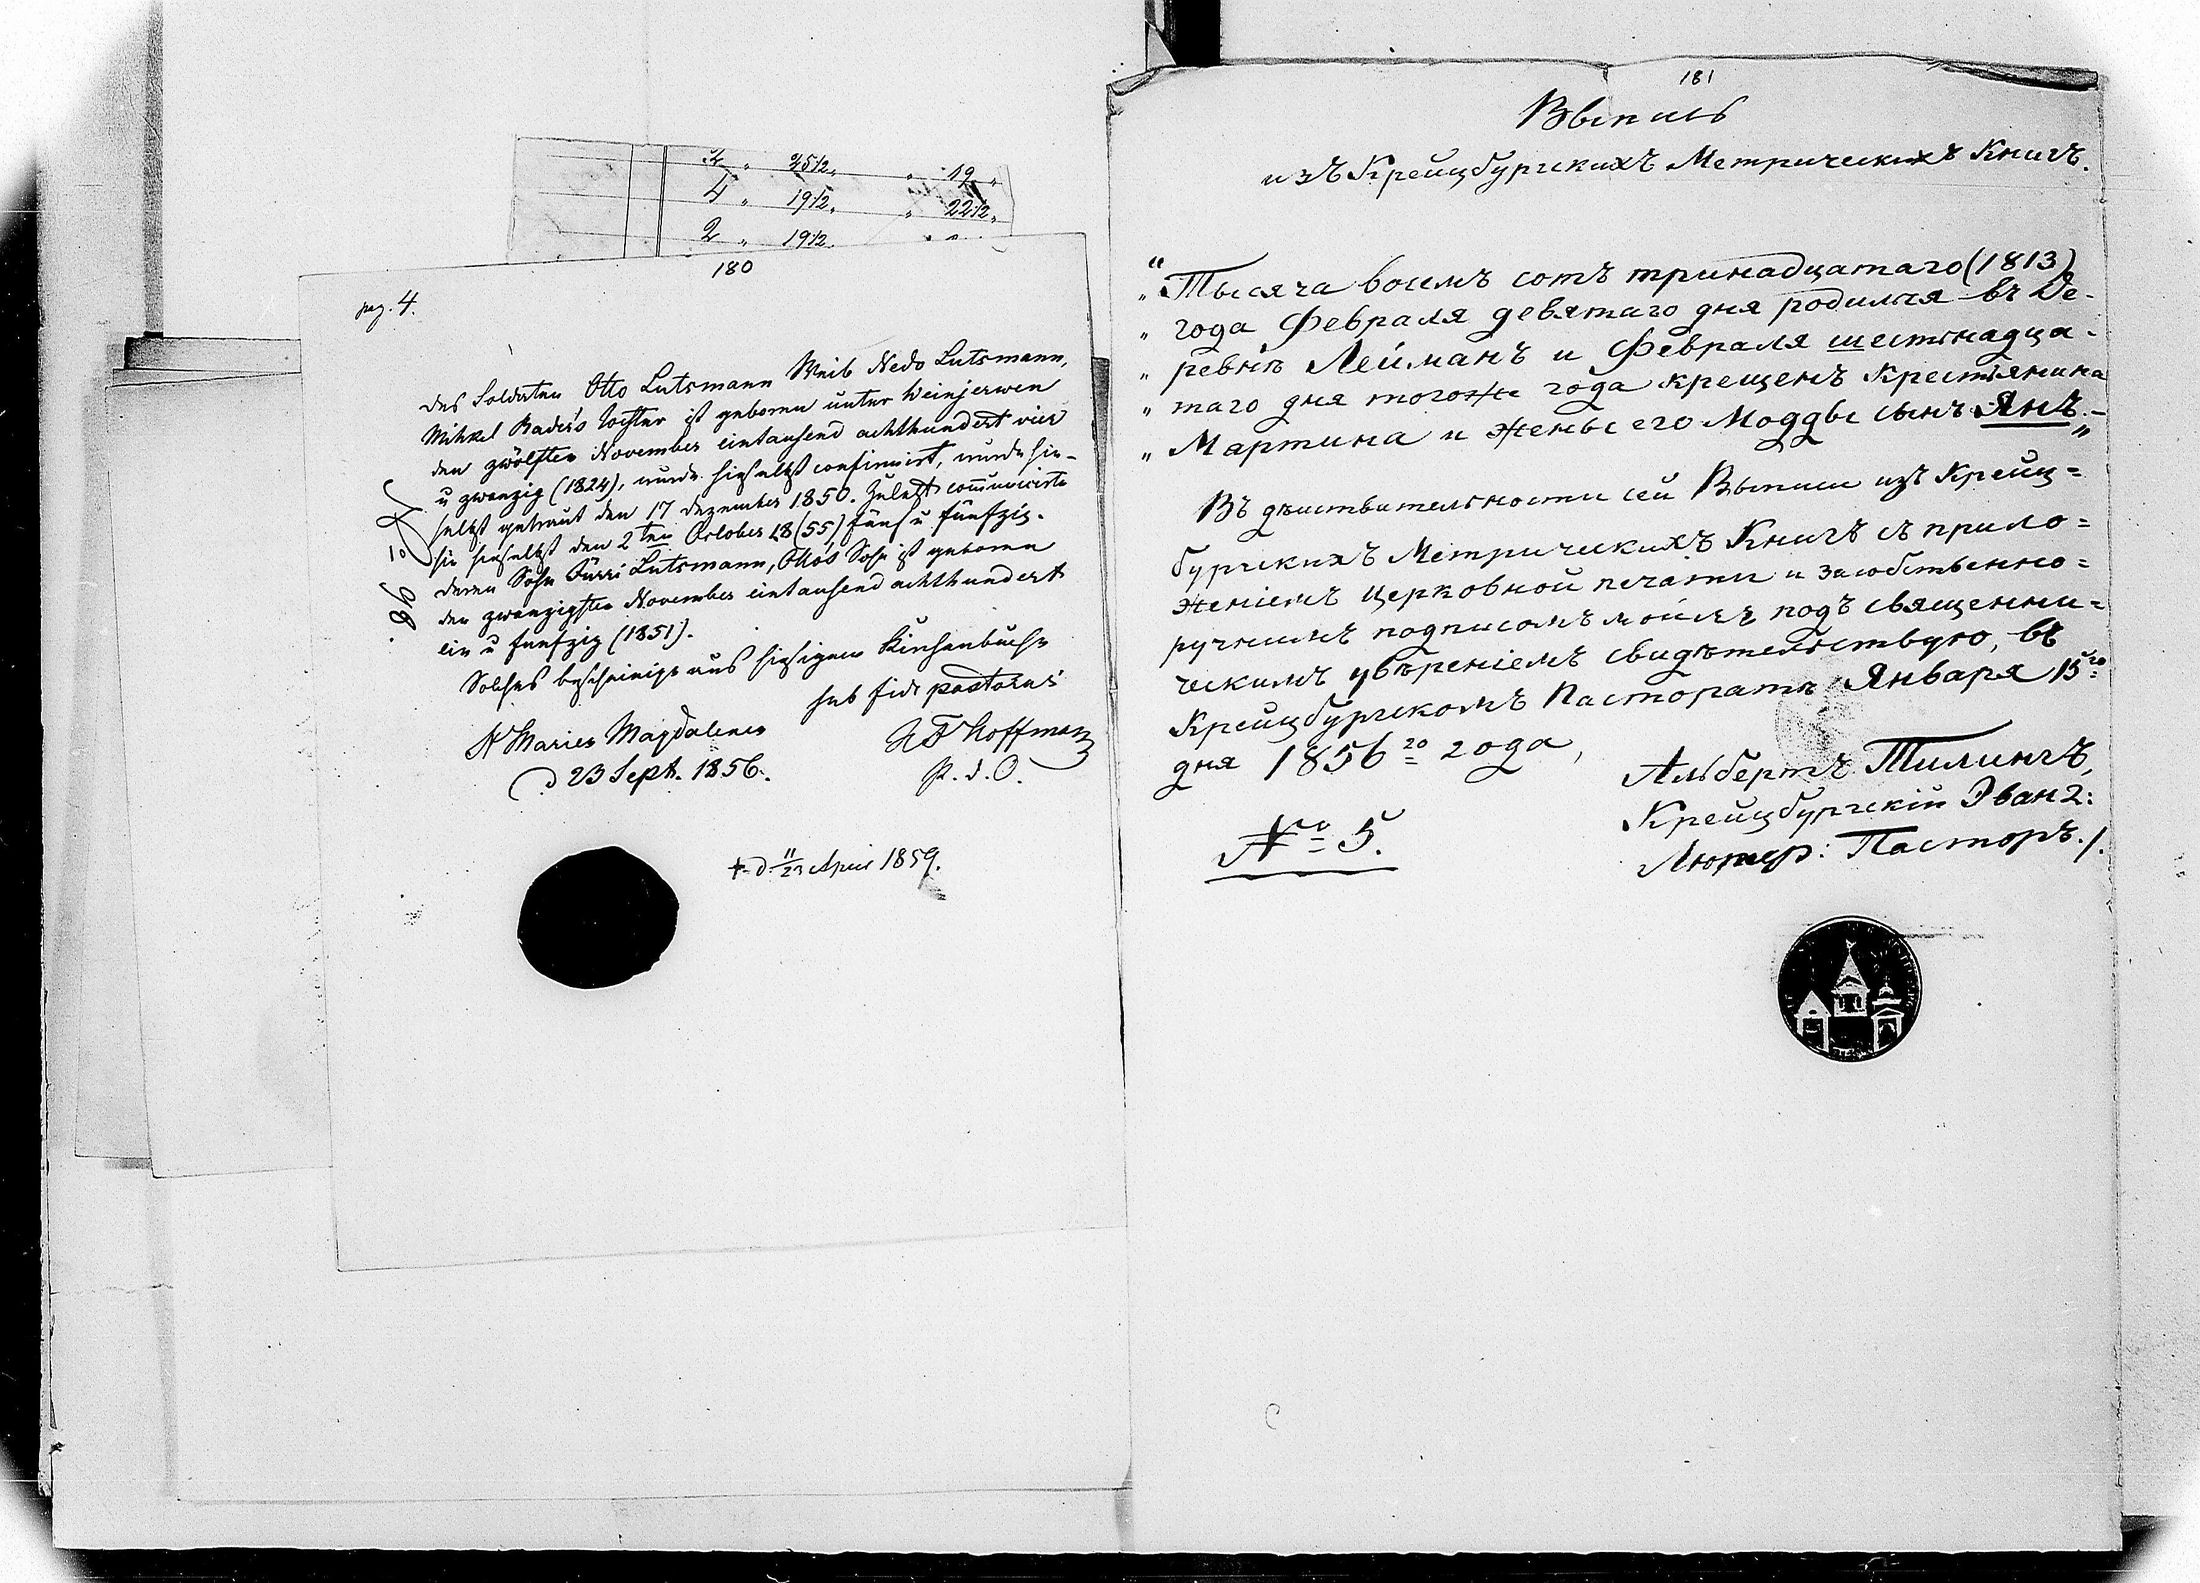 2 " 25 1/2 " " 19 "
4 " 19 1/2 " " 22 1/2 "
2 " 19 1/2
180
pag. 4.
Des Soldaten Otto Lutsmann Weib Nedo Lutsmann,
Mihkel Rader's Tochter ist geboren unter Weinjerwen
den zwölften November eintausend achthundert vier
u zwanzig (1824), wurde hieselbst confirmirt, wurde hie-
selbst getraut den 17 Dezember 1850. Zuletzt communicirte
sie hieselbst den 2ten October 18(55) fünf u fünfzig.
Deren Sohn Jürri Lutsmann, Otto's Sohn ist geboren
den zwanzigsten November eintausend achthundert
ein u fünfzig (1851).
Solches bescheinige aus hiesigem Kirchenbuche
sub fide pastorali
St Marien Magdalenen
d 23 Sept. 1856.
Hoffmann
P. d. O.
† d. 11/23 April 1859.
181
Выпись
изъ Крейцбургскихъ Метрическихъ Книгъ.
"Тысяча восемъ сотъ тринадцатаго (1813)
" года Февраля девятаго дня родился въ Де-
" ревнѣ Лейманъ и Февраля шестнадца-
" таго дня тогоже года крещенъ Крестьянина
" Мартина и жены его Модды сынъ Янъ.–"
Въ дѣиствительности сей Выписи изъ Крейц=
бургскихъ Метрическихъ Книгъ съ прило=
женіемъ церковной печати и за собственно=
ручнымъ подписомъ моимъ подъ священни=
ческимъ увѣреніемъ свидѣтельствую, въ
Крейцбургскомъ Пасторатѣ Января 15го
дня 1856го года,
Альбертъ Тилингъ,
Крейцбургскій Эванг:
Лютер: Пасторъ./.
№ 5.